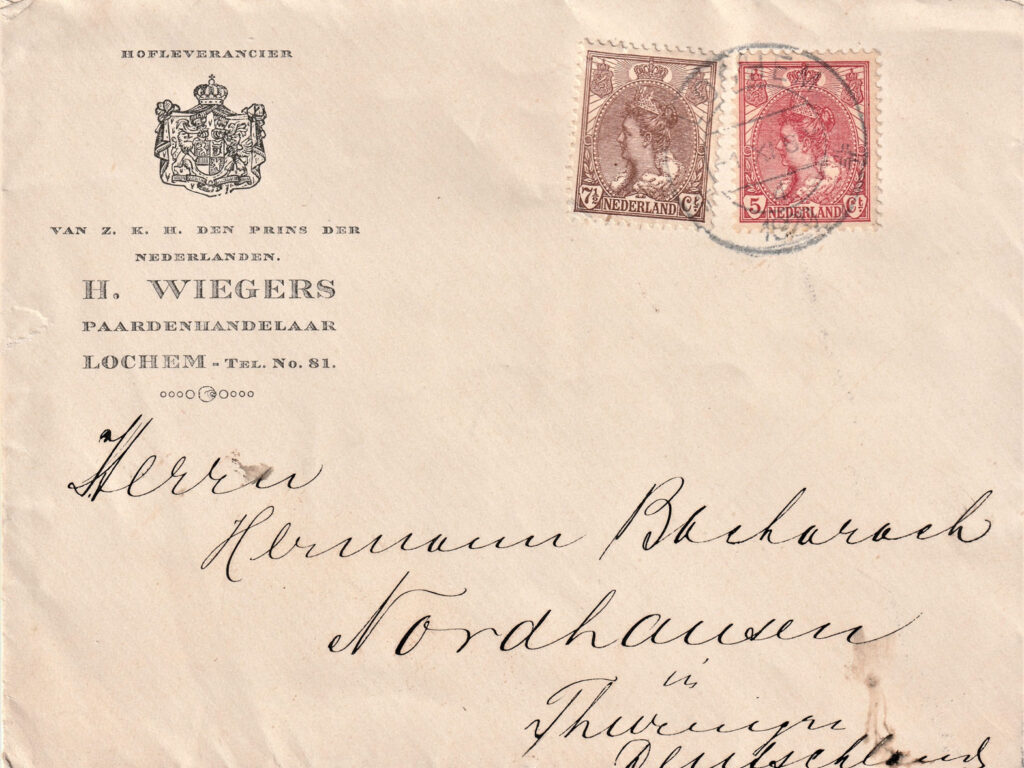 HOFLEVERANCIER
VAN Z. K. H. DEN PRINS DER
NEDERLANDEN.
H. WIEGERS
PAARDENHANDELAAR
LOCHEM - TEL. No. 81.
7½ NEDERLAND Ct
5 NEDERLAND Ct
Herrn
Hermann Bacharach
Nordhausen
in
Thüringen
Deutschland